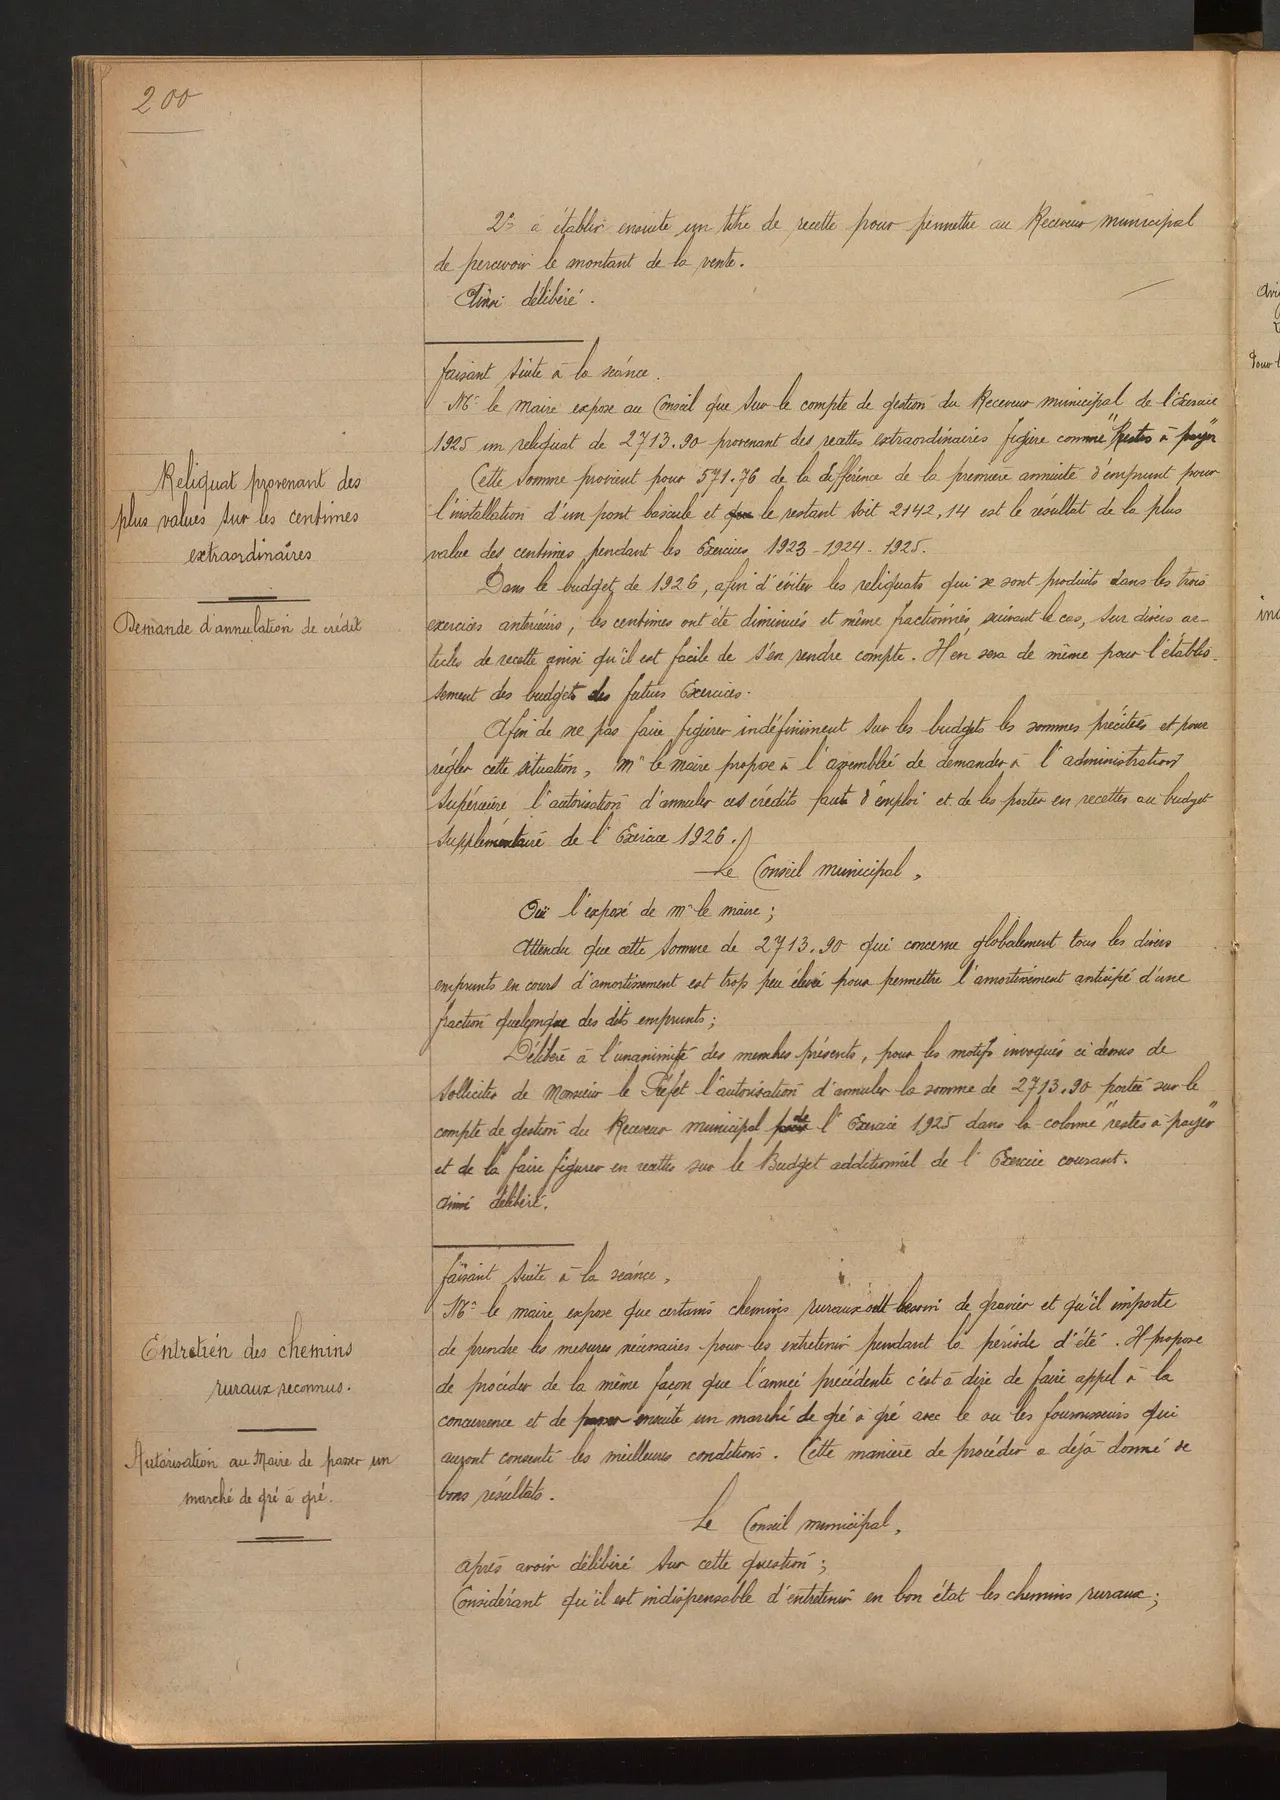 200
2º à établir ensuite un titre de recette pour permettre au Receveur municipal
de percevoir le montant de la vente.
Ainsi délibéré.
faisant suite à la séance.
Mr le maire expose au Conseil que sur le compte de gestion du Receveur municipal de l'Exercice
1925 un reliquat de 2713.90 provenant des recettes extraordinaires figure comme "Restes à payer"
Reliquat provenant des
plus values sur les centimes
extraordinaires
Demande d'annulation de crédit
Cette somme provient pour 571.76 de la différence de la première annuité d'emprunt pour
l'installation d'un pont bascule et que le restant soit 2142,14 est le résultat de la plus
value des centimes pendant les Exercices 1923-1924-1925.
Dans le budget de 1926, afin d'éviter les reliquats qui se sont produits dans les trois
exercices antérieurs, les centimes ont été diminués et même fractionnés, suivant le cas, sur divers ar-
ticles de recette ainsi qu'il est facile de s'en rendre compte. Il en sera de même pour l'établis-
sement des budgets des futurs Exercices.
Afin de ne pas faire figurer indéfiniment sur les budgets les sommes précitées et pour
régler cette situation, Mr le maire propose à l'assemblée de demander à l'administration
supérieure l'autorisation d'annuler ces crédits faute d'emploi et de les porter en recettes au budget
supplémentaire de l'Exercice 1926.
Le Conseil municipal,
Ouï l'exposé de Mr le maire;
Attendu que cette somme de 2713.90 qui concerne globalement tous les divers
emprunts en cours d'amortissement est trop peu élevée pour permettre l'amortissement anticipé d'une
fraction quelconque des dits emprunts;
Délibère à l'unanimité des membres présents, pour les motifs invoqués ci dessus de
solliciter de Monsieur le Préfet l'autorisation d'annuler la somme de 2713.90 portée sur le
compte de gestion du Receveur municipal pour de l'Exercice 1925 dans la colonne "restes à payer"
et de la faire figurer en recettes sur le Budget additionnel de l'Exercice courant.
Ainsi délibéré.
faisant suite à la séance,
Mr le maire expose que certains chemins ruraux ont besoin de gravier et qu'il importe
de prendre les mesures nécessaires pour les entretenir pendant la période d'été. Il propose
de procéder de la même façon que l'année précédente c'est à dire de faire appel à la
concurrence et de passer ensuite un marché de gré à gré avec le ou les fournisseurs qui
auront consenti les meilleures conditions. Cette manière de procéder a déjà donné de
bons résultats.
Entretien des chemins
ruraux reconnus.
Autorisation au Maire de passer un
marché de gré à gré.
Le Conseil municipal,
après avoir délibéré sur cette question;
Considérant qu'il est indispensable d'entretenir en bon état les chemins ruraux;